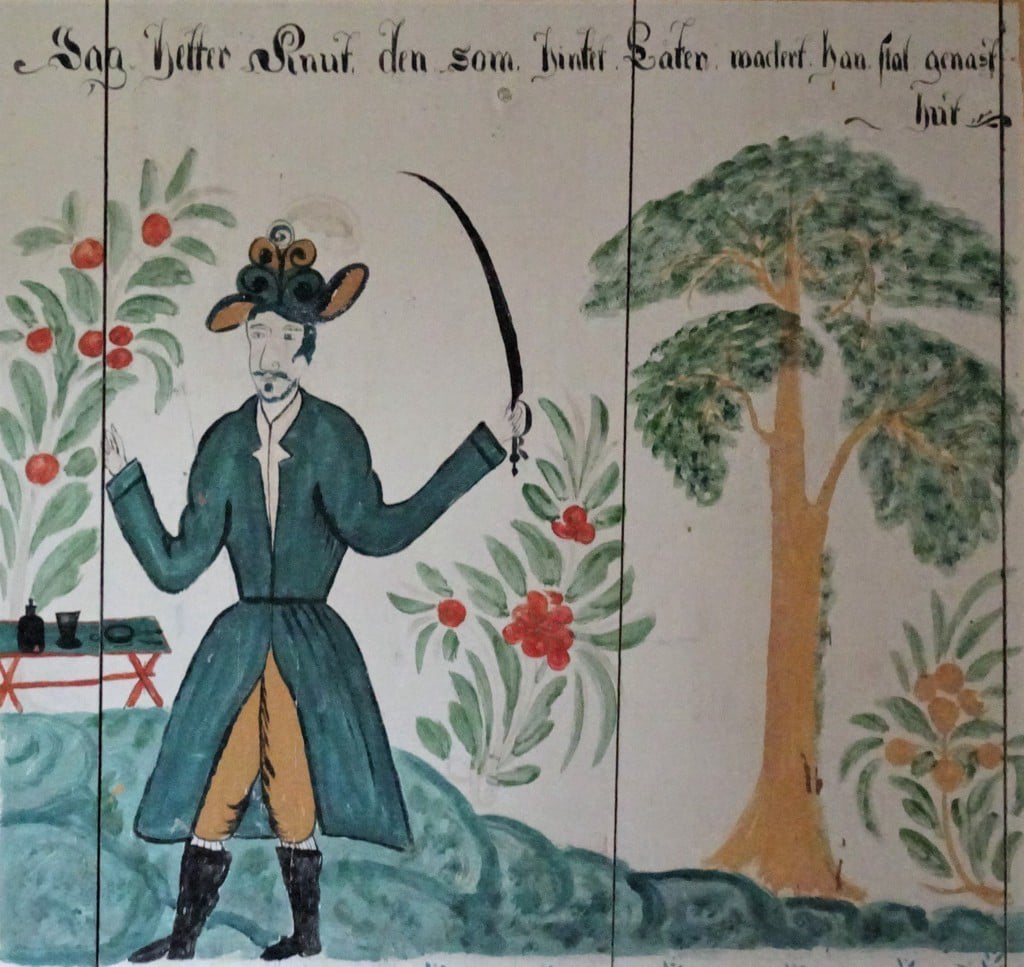 Jag. hetter Knut. den som. hintet. Låter. wackert. han. skal genast
hut